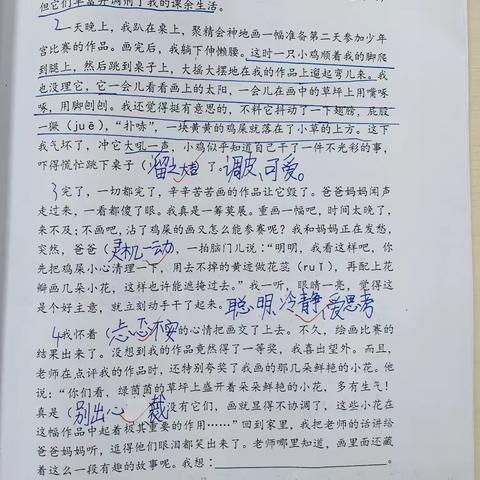 但它们丰富并调剂了我的课余生活。
2一天晚上，我趴在桌上，聚精会神地画一幅准备第二天参加少年
宫比赛的作品。画完后，我躺下伸懒腰。这时一只小鸡顺着我的脚爬
到腿上，然后跳到桌子上，大摇大摆地在我的作品上遛起弯儿来。我
也没理它，它一会儿看看画上的太阳，一会儿在画中的草坪上用嘴啄
啄，用脚刨刨。我还觉得挺有意思的，不料它抖动了一下翅膀，屁股
一撅（juē），“扑哧”，一块黄黄的鸡屎就落在了小草的上方。这下
我气坏了，冲它大吼一声，小鸡似乎知道自己干了一件不光彩的事，
吓得慌忙跳下桌子（溜之大吉）了。调皮、可爱。
3完了，一切都完了，辛辛苦苦画的作品让它毁了。爸爸妈妈闻声
走过来，一看都傻了眼。我真是一筹莫展。重画一幅吧，时间太晚了，
来不及；不画吧，沾了鸡屎的画又怎么能参赛呢？我和妈妈正在发愁，
突然，爸爸（灵机一动），一拍脑门儿说：“明明，我看这样吧，你
先把鸡屎小心清理一下，用去不掉的黄迹做花蕊（ruǐ），再配上花
瓣画几朵小花，这样也许能遮掩过去。”我一听，眼睛一亮，觉得这
是个好主意，就立刻动手干了起来。聪明,冷静,爱思考
4我怀着（忐忑不安）的心情把画交了上去。不久，绘画比赛的
结果出来了。没想到我的作品竟然得了一等奖，我喜出望外。而且，
老师在点评我的作品时，还特别夸奖了我画的那几朵鲜艳的小花。他
说：“你们看，绿茵茵的草坪上盛开着朵朵鲜艳的小花，多有生气！
真是（别出心裁）没有它们，画就显得不协调了，这些小花在
这幅作品中起着极其重要的作用……”回到家里，我把老师的话讲给
爸爸妈妈听，逗得他们眼泪都笑出来了。老师哪里知道，画里面还藏
着这么一段有趣的故事呢。我想：。